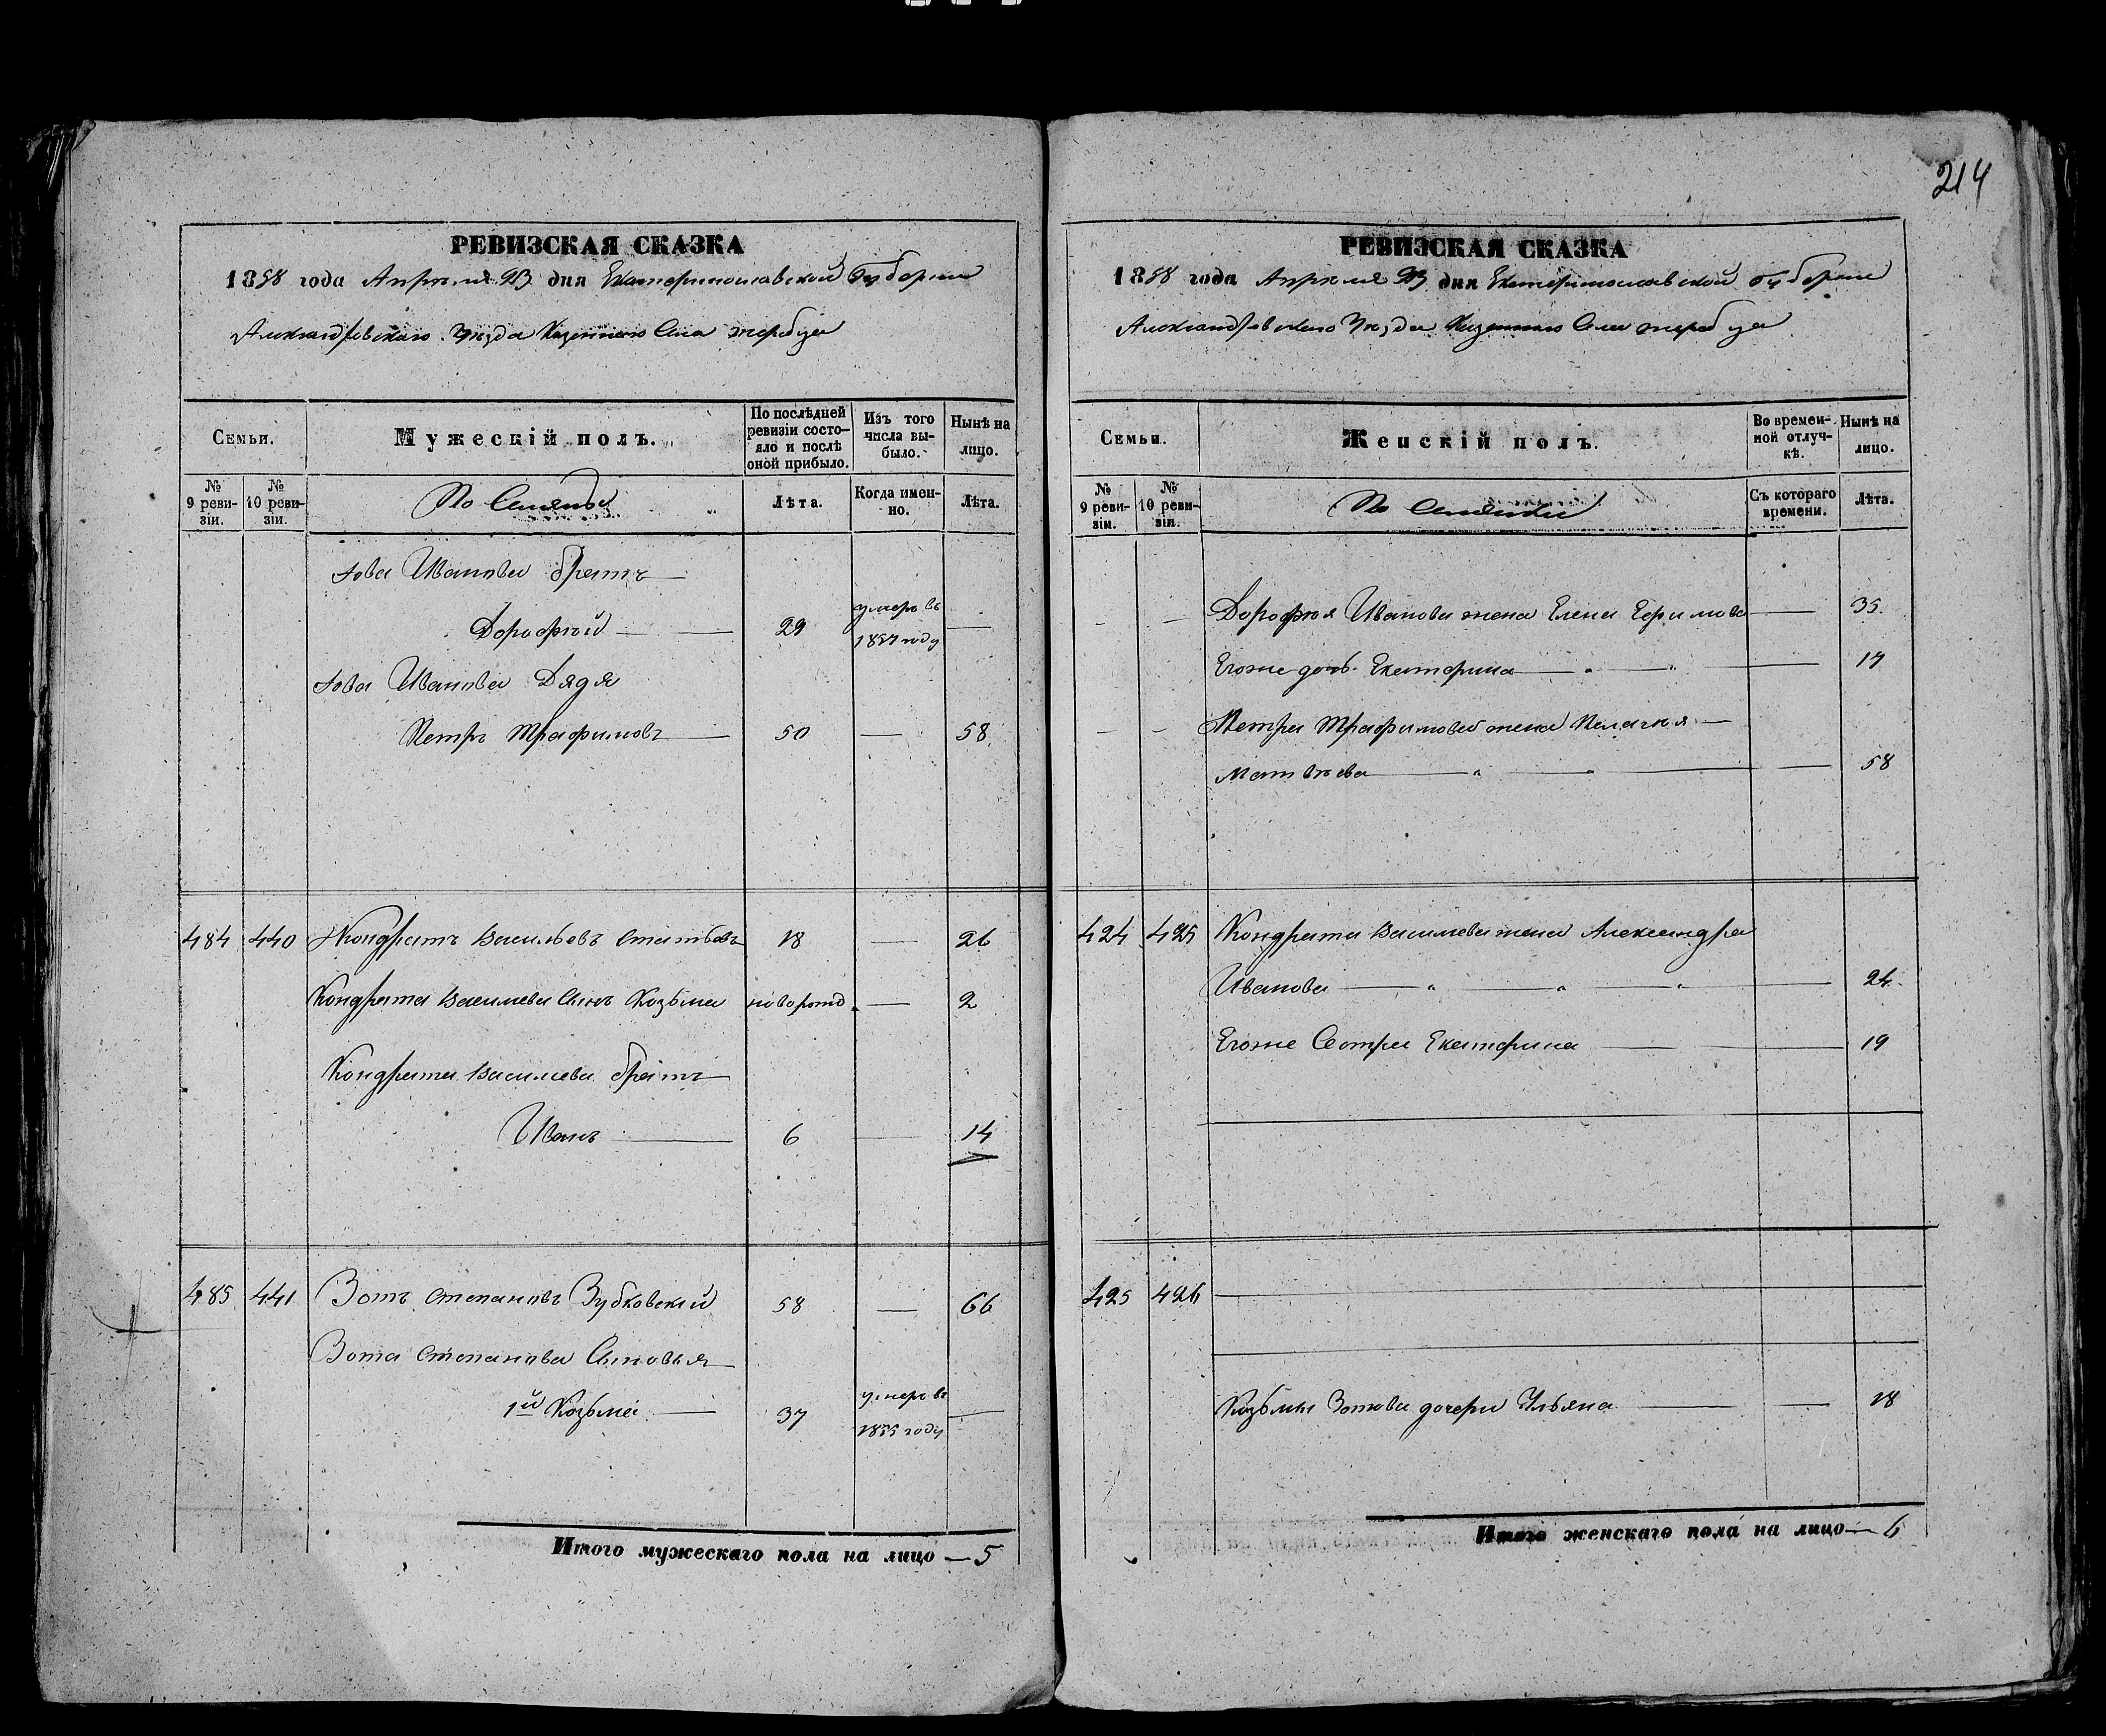 214
РЕВИЗСКАЯ СКАЗКА
1858 года Апреля 23 дня Екатеринославской Губернии
Александровского Уезда Казенного Села Жеребца
Семьи.
Мужескій полъ.
По послѣдней ревизіи состо-
яло и послѣ
оной прибыло.
Изъ того
числа вы-
было.
Нынѣ на
лицо.
№
9 реви-
зіи.
№
10 реви-
зіи.
Лѣта.
Когда имен-
но.
Лѣта.
Іова Иванова братъ
Дорофей 29 умеръ въ
1857 году
Іова Иванова Дядя
Петръ Трафимовъ 50 — 58
484 440 Кондратъ Васильевъ 18 — 26
Кондрата Василева Сынъ Козьма новорожд. — 2
Кондрата Василева братъ
Иванъ 6 — 14
485 441 Зотъ Степановъ Зубковскій 58 — 66
Зота Степанова Сыновья
1й Козьма 37 умеръ въ
1855 году
Итого мужескаго пола на лицо — 5
РЕВИЗСКАЯ СКАЗКА
1858 года Апреля 23 дня Екатеринославской Губернии
Александровского Уезда Казенного Села Жеребца
Семьи.
Женскій полъ.
Во времен-
ной отлуч-
кѣ.
Нынѣ на
лицо.
№
9 реви-
зіи.
№
10 реви-
зіи.
Съ котораго
времени.
Лѣта.
Дорофея Иванова жена Елена Ефимова — 35
Егоже дочь Екатерина — 17
Петра Трафимова жена Пелагея —
Матвѣева — 58
424 425 Кондрата Василева жена Александра
Иванова — 24
Егоже Сестра Екатерина — 19
425 426
Козьмы Зотова дочери Ульяна — 18
Итого женскаго пола на лицо — 6